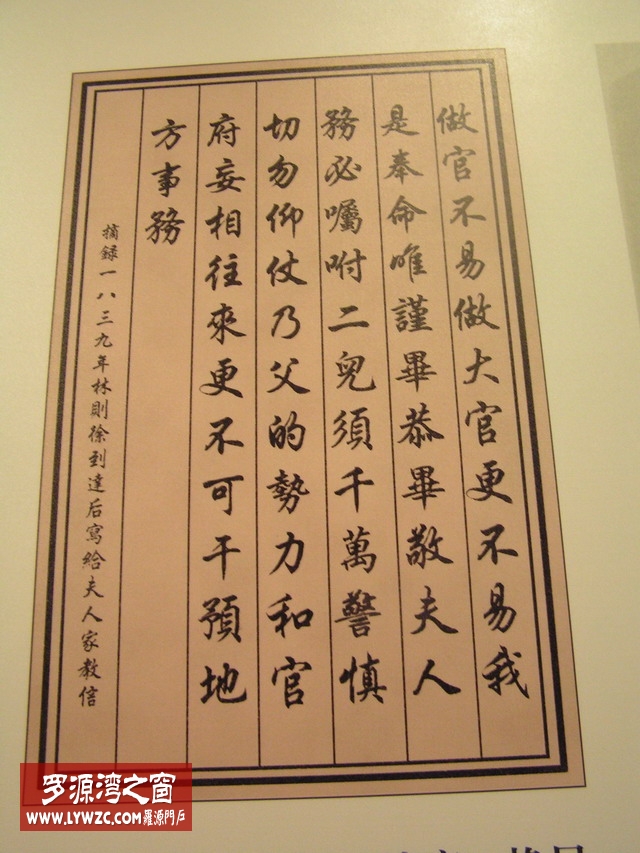 做官不易做大官更不易我
是奉命唯謹畢恭畢敬夫人
務必囑咐二兒須千萬警慎
切勿仰仗乃父的勢力和官
府妄相往來更不可干預地
方事務
摘録一八三九年林則徐到達后寫給夫人家教信
罗源湾之窗
www.LYWZC.com 羅源門戶